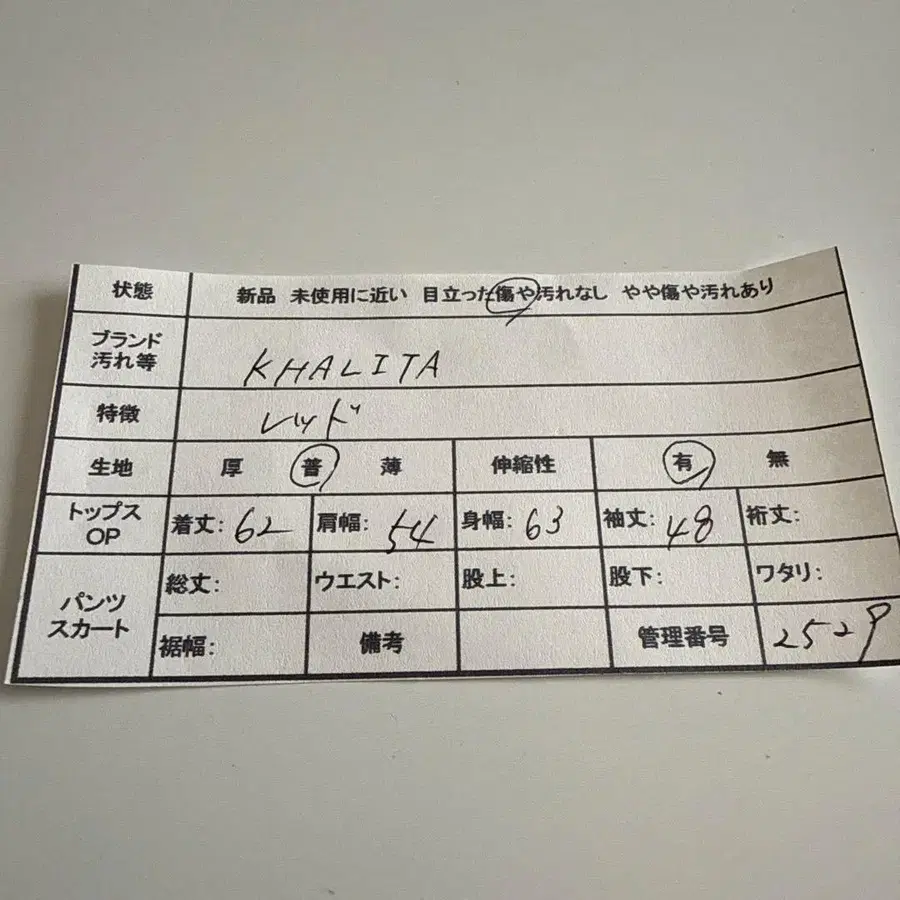 状態 新品 未使用に近い 目立った傷や汚れなし やや傷や汚れあり
ブランド
汚れ等
KHALITA
特徴 レッド
生地 厚 普 薄 伸縮性 有 無
トップス
OP
着丈: 62 肩幅: 54 身幅: 63 袖丈: 48 裄丈:
パンツ
スカート
総丈: ウエスト: 股上: 股下: ワタリ:
裾幅: 備考 管理番号 2529